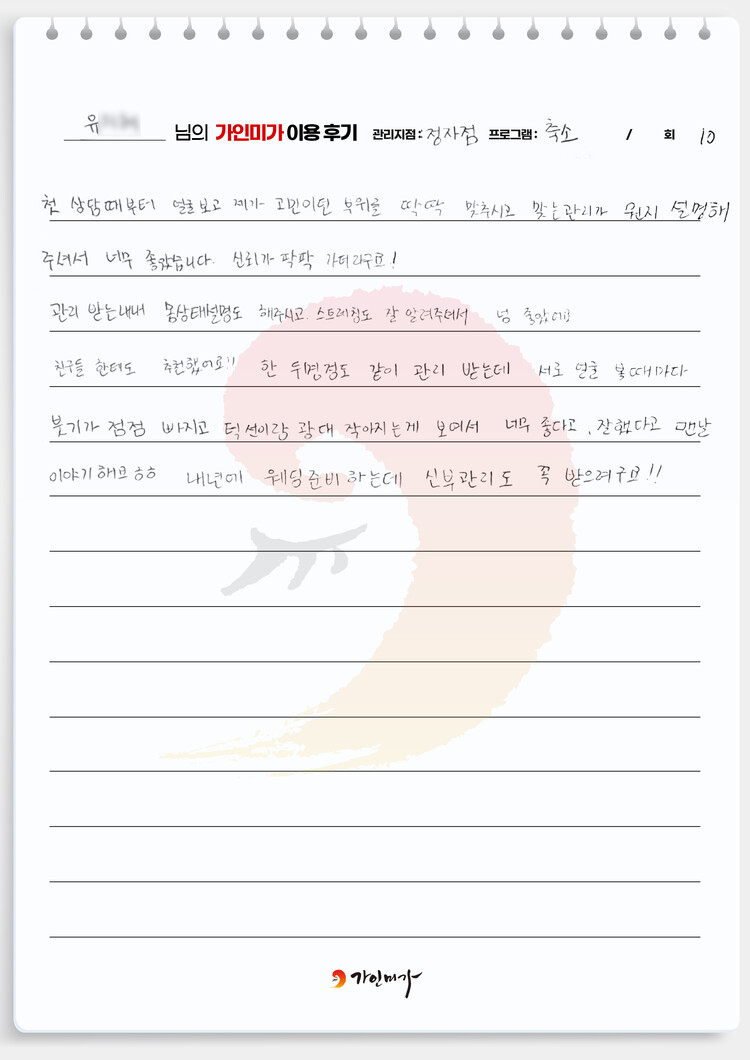 유 님의 가인미가 이용 후기 관리지점: 정자점 프로그램: 축소 / 회 10
첫 상담때부터 얼굴보고 제가 고민이던 부위를 딱딱 맞추시고 맞는관리가 뭔지 설명해
주셔서 너무 좋았습니다. 신뢰가 팍팍 가더라구요!
관리 받는내내 몸상태설명도 해주시고 스트레칭도 잘 알려주셔서 넘 좋았어요
친구들 한테도 추천했어요!! 한 두명정도 같이 관리 받는데 서로 얼굴 볼때마다
붓기가 점점 빠지고 턱선이랑 광대 작아지는게 보여서 너무 좋다고, 잘했다고 맨날
이야기해요ㅎㅎ 내년에 웨딩준비하는데 신부관리도 꼭 받으려구요!!
가인미가